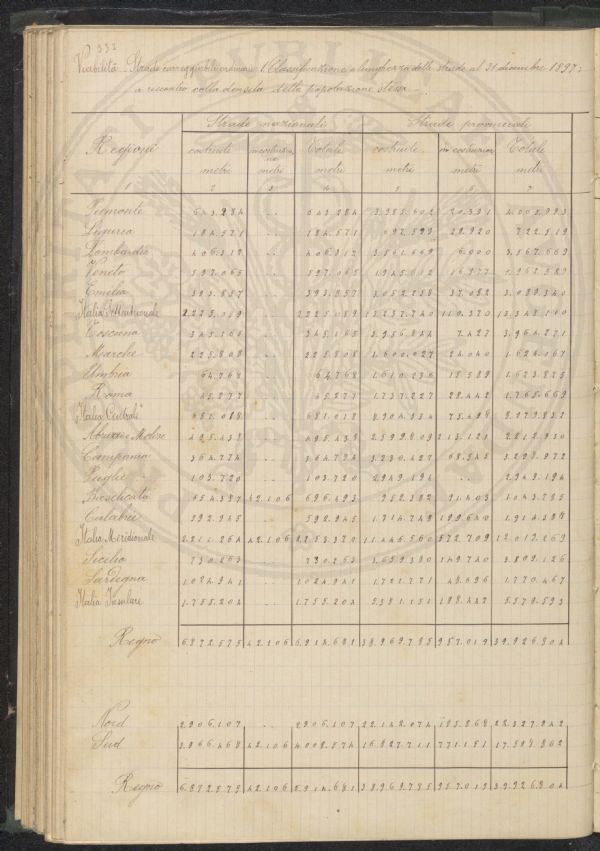 332
Viabilità - Strade carreggiabili ordinarie. 1. Classificazione e lunghezza delle strade al 31 dicembre 1897;
a riscontro colla densità della popolazione stessa.
Strade nazionali Strade provinciali
Regioni costruite in costruzione Totale costruite in costruzione Totale
metri metri metri metri metri metri
1 2 3 4 5 6 7
Piemonte 643.284 .. 643.284 3.985.602 20.391 4.005.993
Liguria 184.571 .. 184.571 692.599 29.920 722.519
Lombardia 406.312 .. 406.312 3.561.669 6.000 3.567.669
Veneto 597.065 .. 597.065 1.945.612 16.977 1.962.589
Emilia 393.857 .. 393.857 3.052.258 37.082 3.089.340
Italia Settentrionale 2.225.089 .. 2.225.089 13.237.740 110.370 13.348.110
Toscana 345.165 .. 345.165 3.956.844 7.427 3.964.271
Marche 225.808 .. 225.808 1.600.027 24.040 1.624.067
Umbria 64.768 .. 64.768 1.610.236 15.589 1.625.825
Roma 45.277 .. 45.277 1.737.227 28.442 1.765.669
Italia Centrale 681.018 .. 681.018 8.904.334 75.498 8.979.832
Abruzzi e Molise 495.438 .. 495.438 2.599.809 213.121 2.812.930
Campania 364.774 .. 364.774 3.230.427 68.545 3.298.972
Puglie 103.720 .. 103.720 2.949.194 .. 2.949.194
Basilicata 654.387 42.106 696.493 952.382 91.403 1.043.785
Calabrie 592.945 .. 592.945 1.714.748 199.640 1.914.388
Italia Meridionale 2.211.264 42.106 2.253.370 11.446.560 572.709 12.019.269
Sicilia 730.263 .. 730.263 3.659.380 149.746 3.809.126
Sardegna 1.024.941 .. 1.024.941 1.721.771 48.696 1.770.467
Italia Insulare 1.755.204 .. 1.755.204 5.381.151 198.442 5.579.593
Regno 6.872.575 42.106 6.914.681 38.969.785 957.019 39.926.804
Nord 2.906.107 .. 2.906.107 22.142.074 185.868 22.327.942
Sud 3.966.468 42.106 4.008.574 16.827.711 771.151 17.598.862
Regno 6.872.575 42.106 6.914.681 38.969.785 957.019 39.926.804